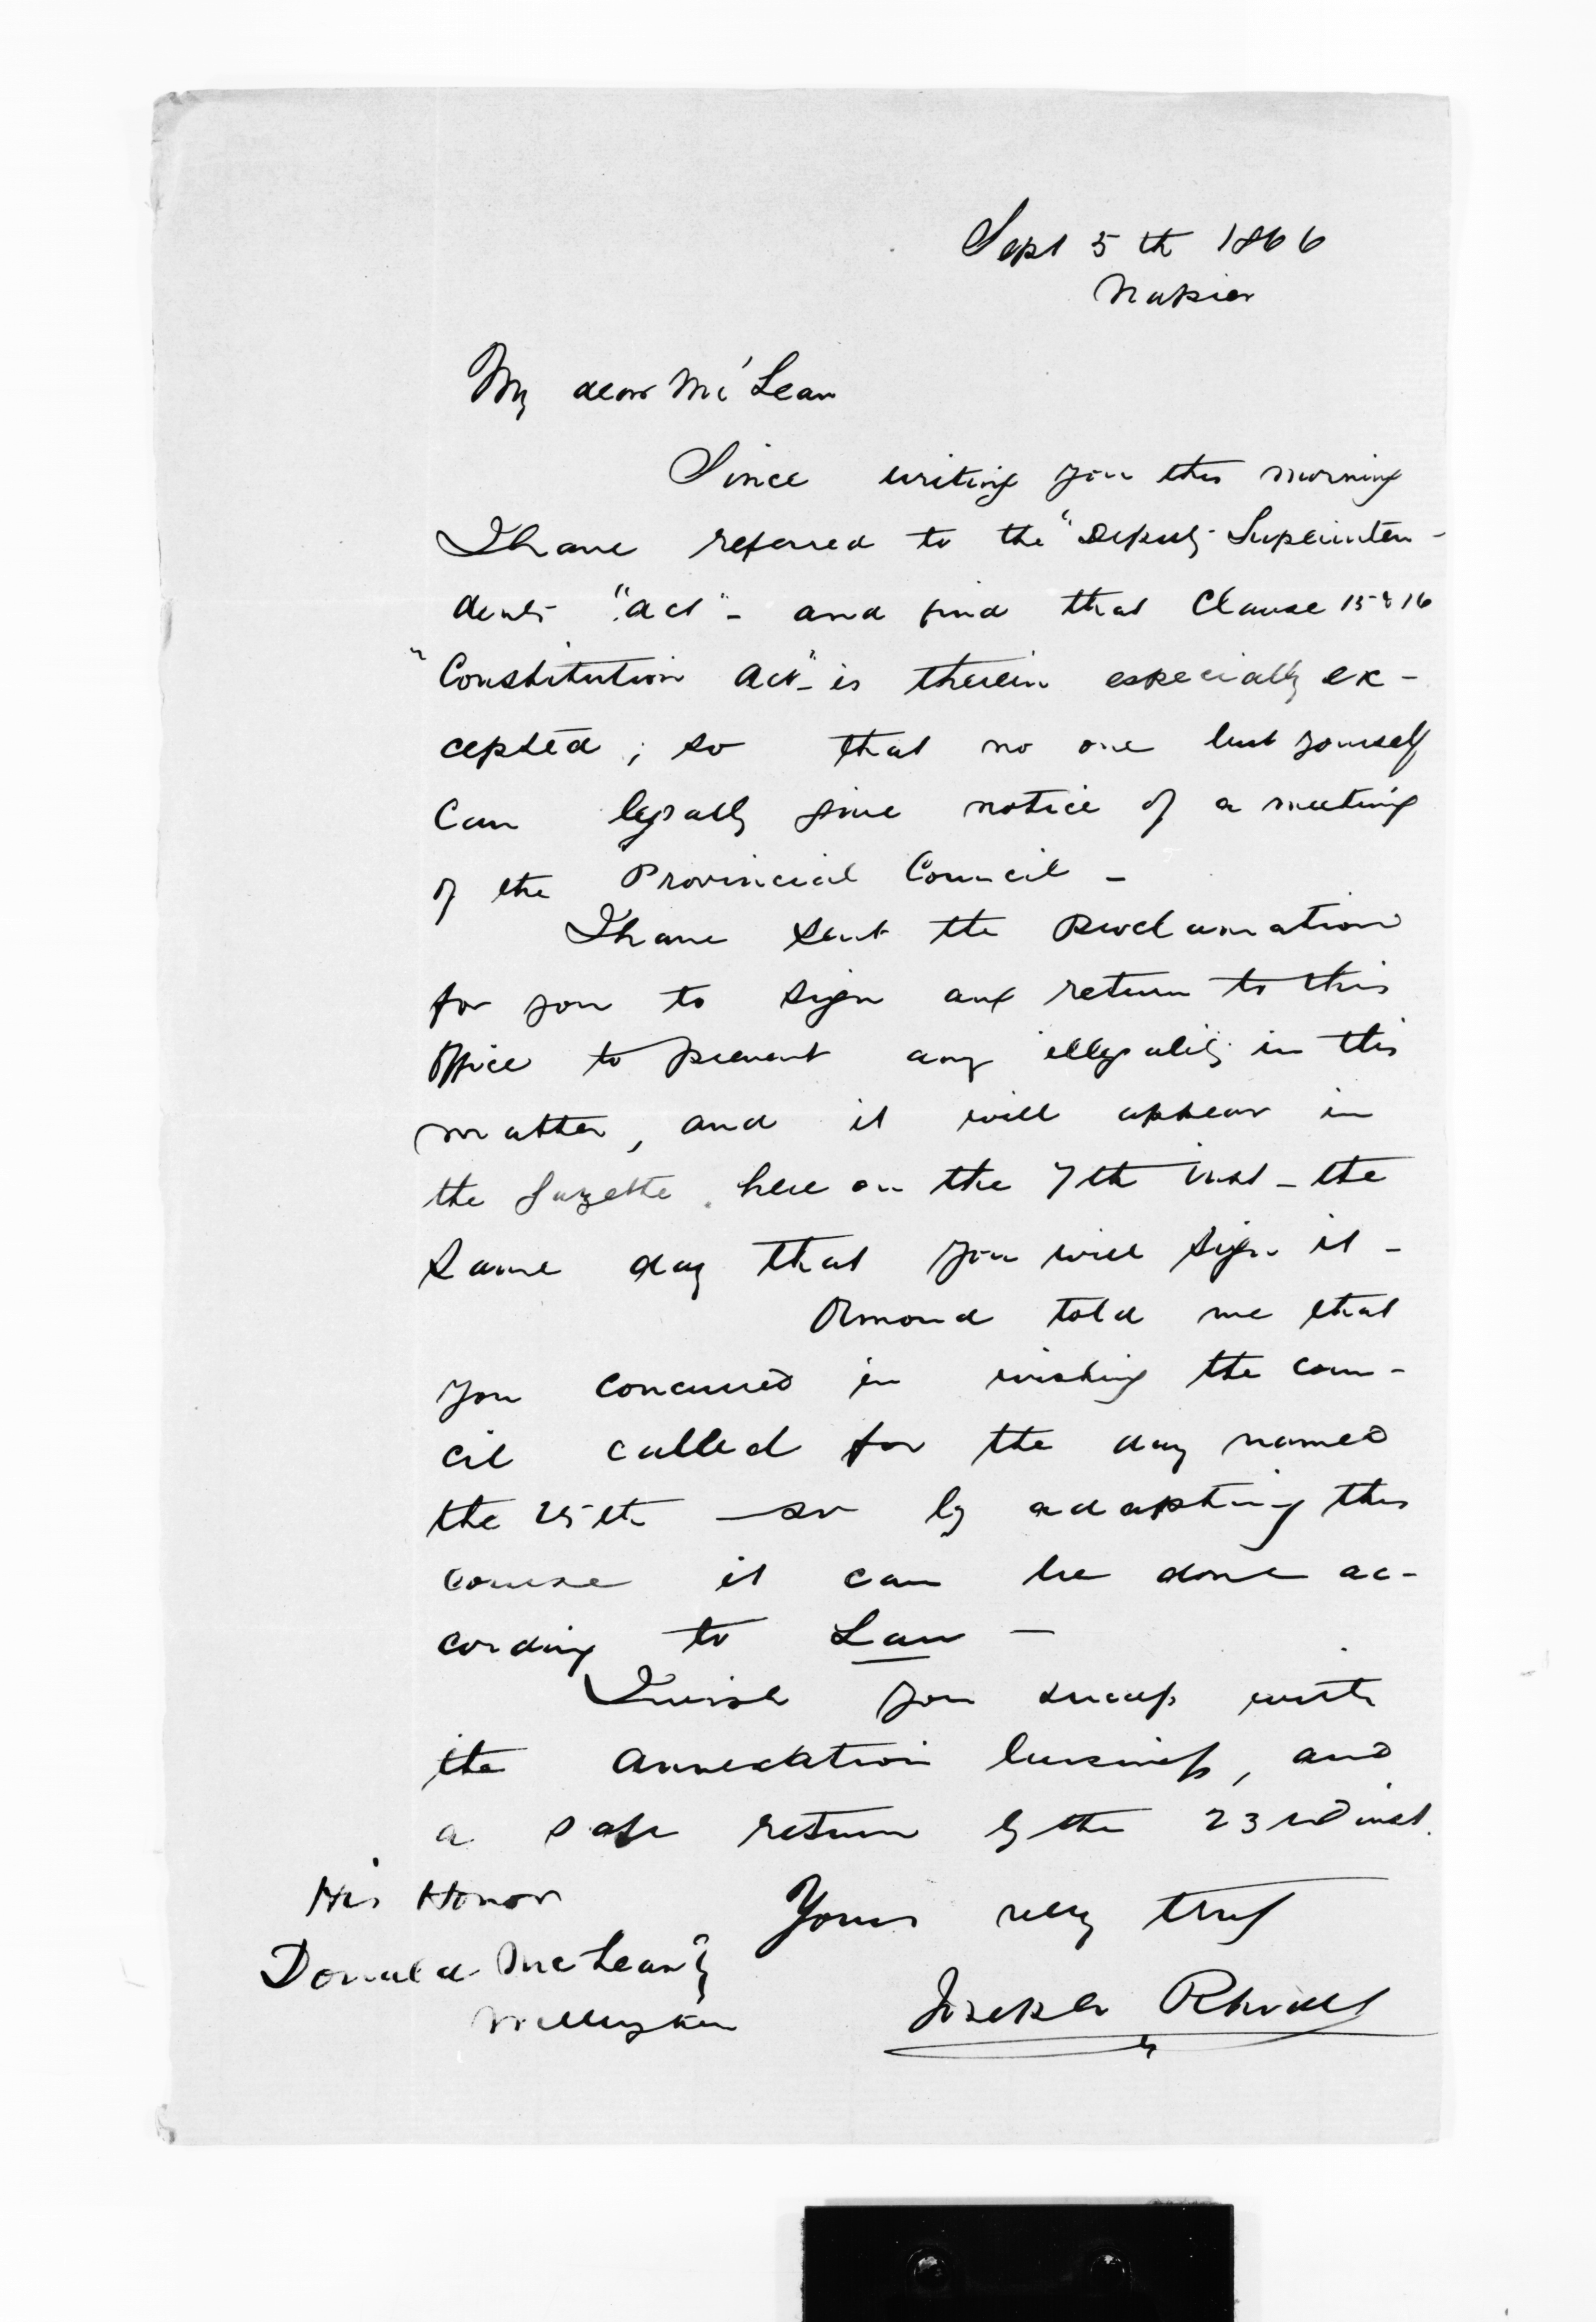 Sept 5th 1866
Napier
My dear McLean
Since writing you this morning
I have referred to the "Deputy Superinten-
dents "act" - and find that Clause 15 & 16
"Constitution Act" - is therein especially ex-
cepted; so that no one but yourself
can legally give notice of a meeting
of the Provincial Council -
I have sent the Proclamation
for you to sign and return to this
office to prevent any illegality in this
matter, and it will appear in
the Gazette here on the 7th inst - the
same day that you will sign it -
Ormond told me that
you concurred in wishing the coun-
cil called for the day named
the 25th - so by adapting this
course it can be done ac-
cording to Law -
I wish you success with
the annexation business, and
a safe return by the 23rd inst.
His Honor
Yours very truly
Donald McLean
Joseph Rhodes
Wellington